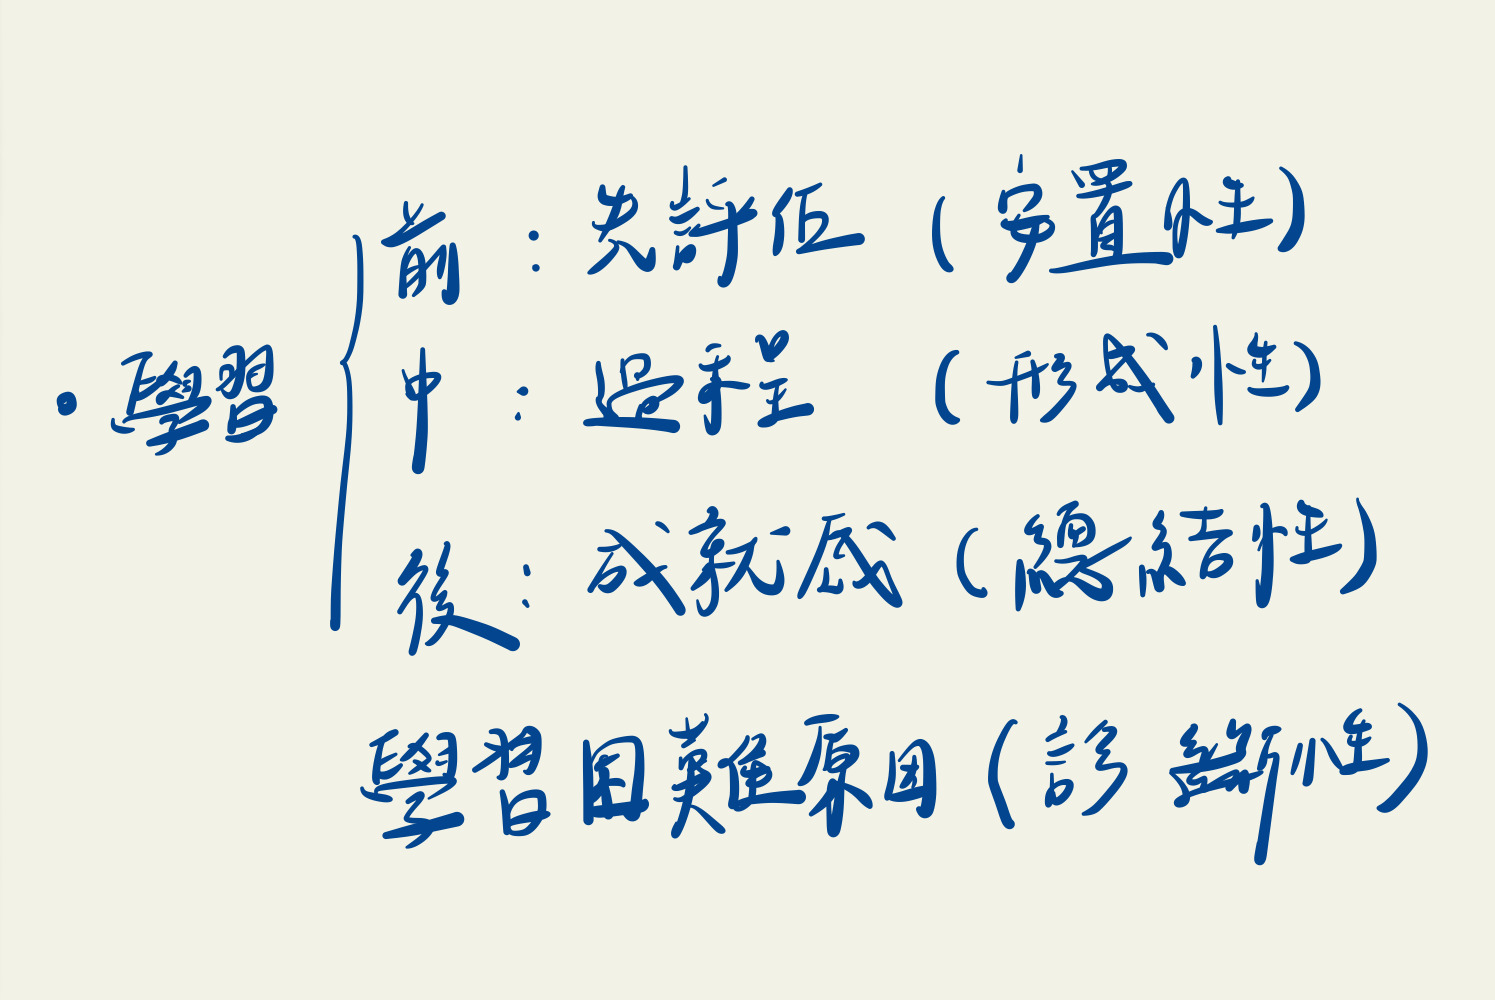 前：先評估（安置性）
・學習 中：過程（形成性）
後：成就感（總結性）
學習困難原因（診斷性）